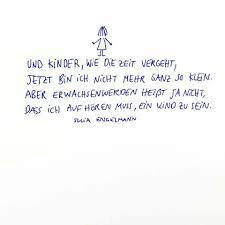 UND KINDER, WIE DIE ZEIT VERGEHT,
JETZT BIN ICH NICHT MEHR GANZ SO KLEIN.
ABER ERWACHSENWERDEN HEIßT JA NICHT,
DASS ICH AUFHÖREN MUSS, EIN KIND ZU SEIN.
JULIA ENGELMANN